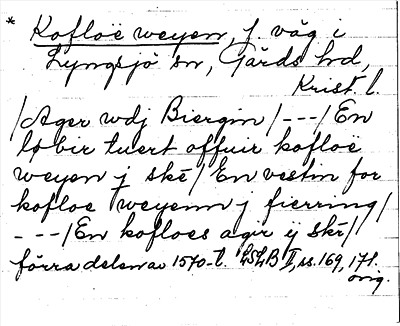 * Kofloë weyen, f. väg i
Lyngsjö sn, Gärds hd,
Krist. l.
/Ager wdj Biergin/---/En
løbir tuert offuir kofloë
weyen j skē/ En vestin for
kofloe weyenn j fierring/
---/En kofloes agir ij skr/
förra delen av 1570-t. LSLB II, ss. 169, 171.
orig.